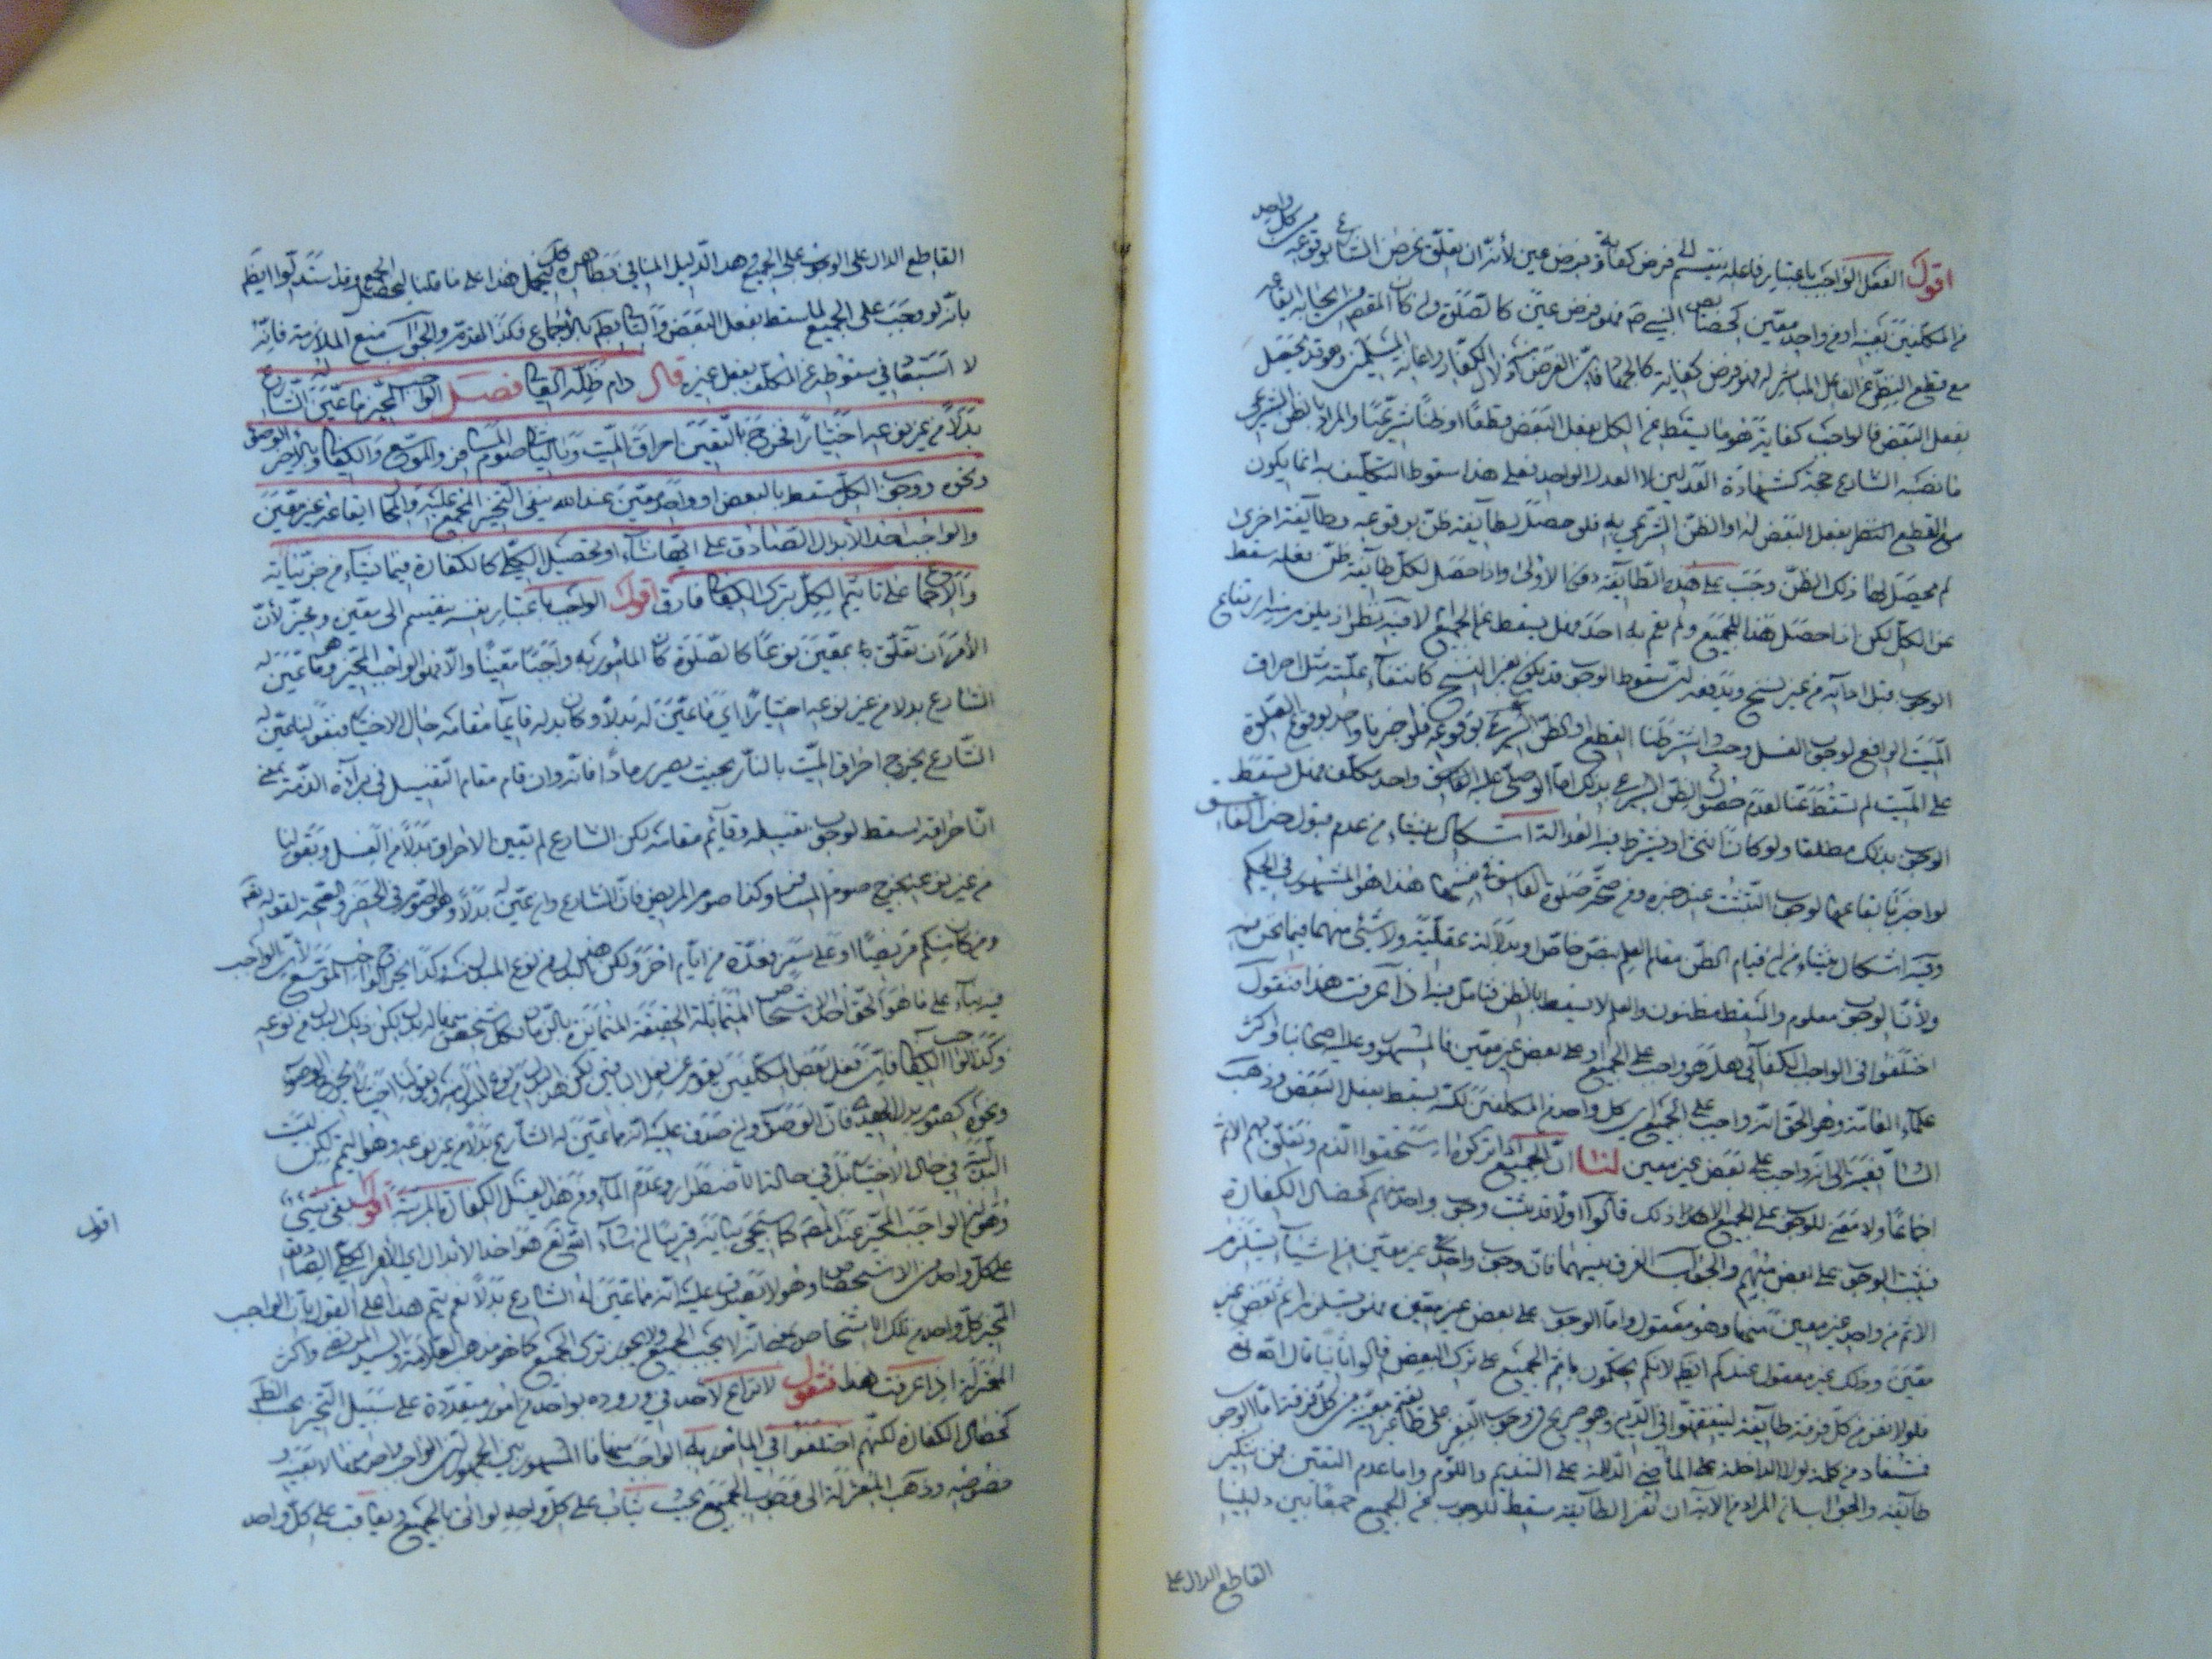 كل واحد
اقول الفعل الواجب باعتبار فاعله ينقسم الى فرض كفاية وفرض عين لأنه ان تعلق غرض الشارع بوقوعه من
من المكلفين بعينه او من واحد معين كخصائص النبي ص فهو فرض عين كالصلوة وان كان المقصود من ايجابه ايقاعه
مع قطع النظر عن الفاعل المباشر له فهو فرض كفاية كالجهاد فان الغرض منه اذلال الكفار واعانة المسلمين وهو قد يحصل
بفعل البعض فالواجب كفاية هو ما يسقط عن الكل بفعل البعض قطعا او ظنا شرعيا والمراد بالظن الشرعي
ما نصبه الشارع حجة كشهادة العدلين لا العدل الواحد فعلى هذا سقوط التكليف به انما يكون
مع القطع بفعل البعض له او الظن الشرعي به فلو حصل لطائفة ظن بوقوعه وطائفة اخرى
لم يحصل لها ذلك الظن وجب على هذه الطائفة دون الأولى واذا حصل لكل طائفة ظن بفعله سقط
عن الكل لكن اذا حصل هذا للجميع ولم يقم به احد فهل يسقط عن الجميع لا فيه نظر اذ يلزم منه ارتفاع
الوجوب قبل ادائه من غير نسخ ويدفعه ان سقوط الوجوب قد يكون بغير النسخ كانتفاء علته مثل احراق
الميت الرافع لوجوب الغسل وحيث اشترطنا القطع او الظن الشرعي بوقوعه فلو اخبرنا واحد بوقوع الصلوة
على الميت لم تسقط عنا لعدم حصول الظن الشرعي بذلك اما الوصلى عليه الفاسق واحد مكلف فهل يسقط
الوجوب بذلك مطلقا ولو كان انثى او يشترط فيه العدالة اشكال ينشاء من عدم قبول خبر الفاسق
لو اخبر بايقاعها لوجوب التثبت عند خبره ومن صحة صلوة الفاسق في نفسها هذا هو المشهور في الحكم
وفيه اشكال ينشاء من ان قيام الظن مقام العلم بنص خاص او بدلالة عقلية ولا شئ منهما فيما نحن فيه
ولأن الوجوب معلوم والمسقط مظنون والعلم لا يسقط بالظن فتامل فيه اذا عرفت هذا فنقول
اختلفوا في الواجب الكفائي هل هو واجب على الجميع او على بعض غير معين فالمشهور وعليه اصحابنا واكثر
علماء العامة وهو الحق انه واجب على الجميع اي كل واحد من المكلفين لكنه يسقط بفعل البعض وذهب
الشافعية الى انه واجب على بعض غير معين لنا ان الجميع اذا تركوه استحقوا الذم وتعلق بهم الاثم
اجماعا ولا معنى للوجوب على الجميع الا هذا ذلك قالوا اولا قد ثبت وجوب واحد مبهم كخصال الكفارة
فيثبت الوجوب على بعض مبهم والجواب الفرق بينهما فان وجوب واحد غير معين من اشياء يستلزم
الاثم من واحد غير معين منها وهو معقول واما الوجوب على بعض غير معين فهو يستلزم اثم بعض غير
معين وذلك غير معقول عندكم ايضا لانكم تحكمون باثم الجميع على ترك البعض قالوا ثانيا قال الله تعالى
فلولا نفر من كل فرقة طائفة ليتفقهوا في الدين وهو صريح في وجوب النفر على طائفة غير معينة من كل فرقة اما الوجوب
فيستفاد من كلمة لولا الداخلة على الماضي الدالة على التنديم واللوم واما عدم التعين فمن تنكير
طائفة والجواب ان المراد من الاية ان نفر الطائفة مسقط للوجوب عن الجميع جمعا بين دليلنا
القاطع الدال على
القاطع الدال على الوجوب على الجميع وهذا الدليل المنافي له ظاهرا لكن يحمل هذا على ما قلنا ليحصل الجمع وقد استدلوا ايضا
بانه لو وجب على الجميع لما سقط بفعل البعض والتالي بط بالاجماع فكذا المقدم والجواب منع الملازمة فانه
لا استبعاد في سقوطه عن المكلف بفعل غيره قال دام ظله العالي فصل الواجب المخير ما عين له الشارع
بدلا من غير نوعه اختيارا فخرج بالتعين احراق الميت وبالباقي صوم المسافر والموسع والكفائي وبالاخير الوضوء
ونحوه ووجوب الكل ويسقط بالبعض او واحد معين عند الله ينفى التخيير المجمع عليه والحال ايقاع غير معين
والواجب احد الأبدال الصادق على ايها شاء او تحصيل الكلي كالكفارة فيما يشاء من جزئياته
والاجماع على تاثيم الكل بترك الكفائي فارق اقول الواجب باعتبار نفسه ينقسم الى معين ومخير لأن
الأمر ان تعلق بمعين نوعا كالصلوة كان المأمور به واجبا معينا والا فهو الواجب المخير وهو ما عين له
الشارع بدلا من غير نوعه اختيارا اي ما عين له بدلا وكان بدله قائما مقامه حال الاختيار فبقولنا عين له
الشارع يخرج احراق الميت بالنار بحيث يصير رمادا فانه وان قام مقام التغسيل في براءة الذمة بمعنى
ان احراقه مسقط لوجوب تغسيله وقائم مقامه لكن الشارع لم يعين الاحراق بدلا من الغسل وبقولنا
من غير نوعه يخرج صوم المسافر وكذا صوم المريض فان الشارع وان عين له بدلا وهو الصوم في الحضر والصحة لقوله تعالى
ومن كان منكم مريضا او على سفر فعدة من ايام اخر ولكن هذا البدل من نوع المبدل منه وكذا يخرج الواجب الموسع لأن الواجب
فيه بناء على ما هو الحق احد الاشخاص المتماثلة الحقيقة المتمايزة بالزمان فكل شخص منها له بدل لكن ذلك البدل من نوعه
وكذا الواجب الكفائي فان فعل بعض المكلفين يقوم عن فعل الباقي لكن هذا البدل من نوع المبدل منه وبقولنا اختيارا يخرج الوضوء
ونحوه فان الوضوء وان صدق عليه انه ما عين له الشارع بدلا من غير نوعه وهو التيمم لكن ليست
البدلية في حال الاختيار بل في حالة الاضطرار وعدم الماء ومن هذا القبيل الكفارة المرتبة اقول بقى شئ
وهو ان الواجب المخير عند المصنف كما سيجئ بيانه قريبا ان شاء الله تعالى هو احد الابدال اي الأمر الكلي الصادق
على كل واحد من الاشخاص وهو لا يصدق عليه انه ما عين له الشارع بدلا نعم يتم هذا على القول بأن الواجب
المخير كل واحد من تلك الاشخاص بمعنى انه لا يجب الجميع ولا يجوز ترك الجميع كما هو مذهب العلامة والسيد المرتضى واكثر
المعتزلة اذا عرفت هذا فنقول لا نزاع لأحد في وروده بواحد من امور متعددة على سبيل التخيير بحسب الظاهر
كخصال الكفارة لكنهم اختلفوا في المأمور به الواجب منها فالمشهور بين الجمهور ان الواجب واحد منها لا بعينه
وذهب المعتزلة الى وجوب الجميع بحيث يثاب على كل واحد لو اتى بالجميع ويعاقب على كل واحد
اقول